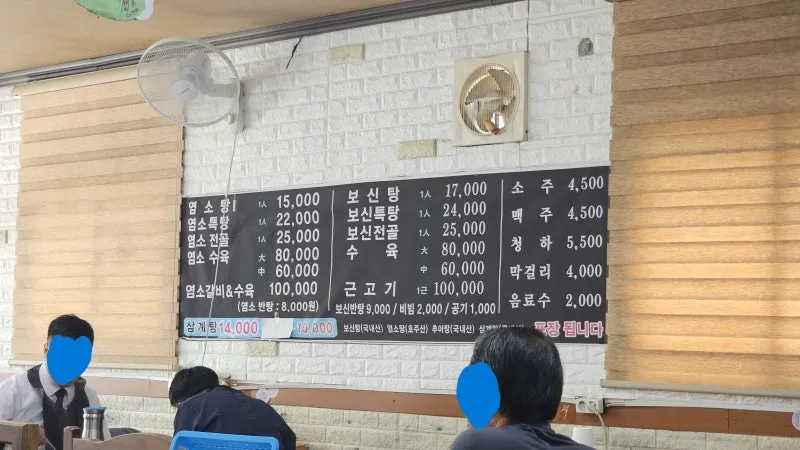 염소탕 1人 15,000
염소특탕 1人 22,000
염소 전골 1人 25,000
염소 수육 大 80,000
中 60,000
염소갈비&수육 100,000
(염소 반탕 : 8,000원)
삼계탕 14,000
10,000
보신탕 1人 17,000
보신특탕 1人 24,000
보신전골 1人 25,000
수육 大 80,000
中 60,000
근고기 1근 100,000
보신반탕 9,000 / 비빔 2,000 / 공기 1,000
보신탕(국내산) 염소탕(호주산) 추어탕(국내산)
소주 4,500
맥주 4,500
청하 5,500
막걸리 4,000
음료수 2,000
포장 됩니다